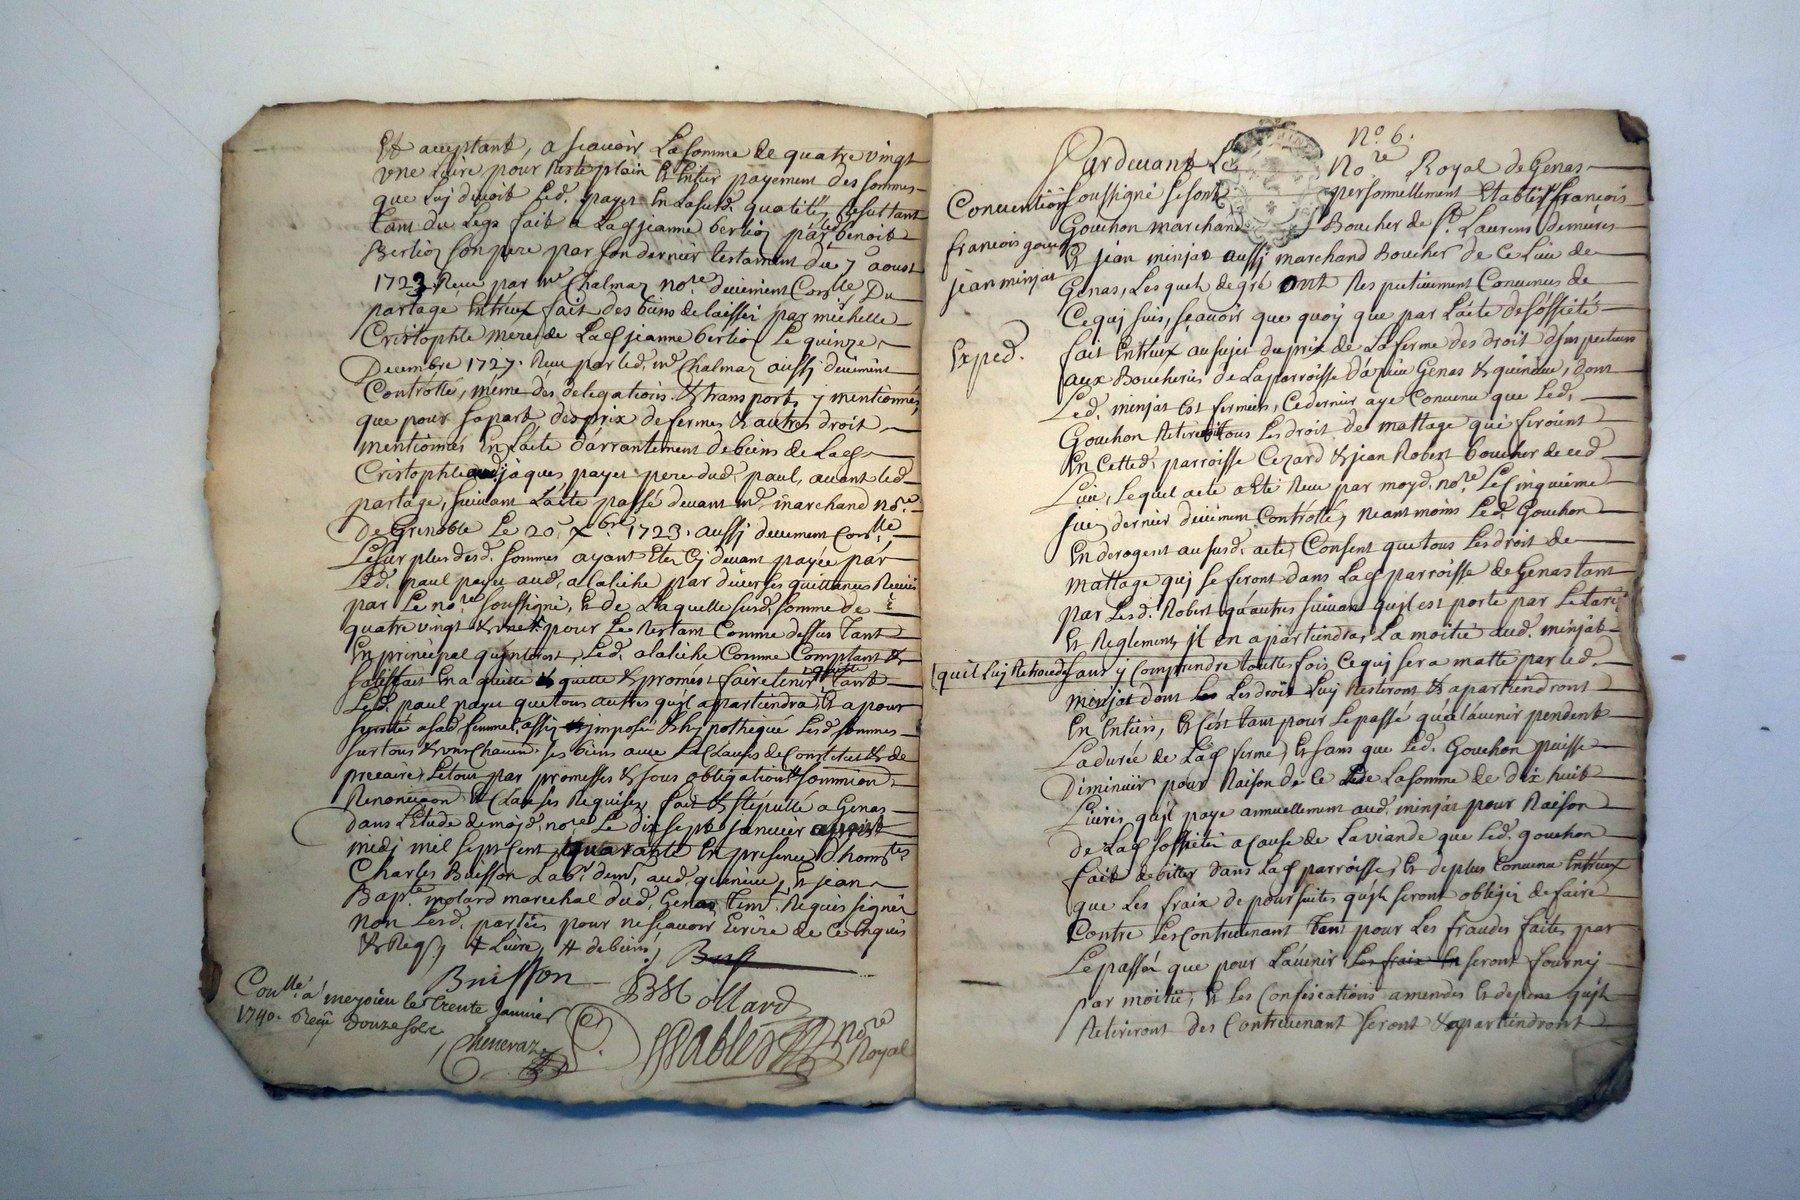 Et acceptant, a scavoir La somme de quatre vingt
une Livre pour Reste plain Et Entier payement des sommes
que Luy devoit Led. payet En La susd. qualité, Resultant
tant du Legs fait a Lad. jeanne berlioz par led. benoit
Berlioz son pere par son dernier testament du 7e aoust
1723 Receu par me Chalmaz nore. deuement Conlle. Du
partage Entreux fait des biens delaissez par michelle
Cristophle mere de Lad. jeanne berlioz Le quinze
Decembre 1727. Receu par led. me Chalmaz aussj deuëment
Contrôllé, même des delegations & transports y mentionnés,
que pour sa part des prix de fermes & autres droit
mentionnés En L'acte d'arrantement de biens de Lad.
Cristophle aud. jaques payet pere dud. paul, avant led.
partage, suivant L'acte passé devant me. marchand nore.
De Grenoble Le 20e. Xbre. 1723. aussj deuement Conlle.
Le surplus desd. sommes ayant Eté Cy devant payée par
Led. paul payet aud. alaliche par diverses quittances Receües
par Le nore. soussigné, Et de Laquelle susd. somme de
quatre vingt & une # pour Le Restant Comme dessus tant
En principal qu'interest, Led. alaliche Comme Comptant &
satisfait En a quitté & quitte & promet faire tenir quitte tant
Led. paul payet que tous autres qu'il apartiendra, Et a pour
sureté a sad. femme, assis & imposé & hypothequé Lesd. sommes
sur tous & uns Chacun ses biens avec La Clauses de Constitut & de
precaire, Letout par promesses & sous obligations & sommion
Renonciaon & Clauses Requises, fait & stipullé a Genas
dans L'Etude de moyd. nore. Le dix sept janvier apres
midj mil sept cent quarante En presence d'honntes
Charles Buisson Labr. dem. aud. quinieu, Et jean
Bapte. molard marechal dud. Genas tem. Requis signés
non Lesd. parties pour ne scavoir Ecrire de ce Enquis
& Reqs. # Livre, # de biens,
Buisson
BM ollard
Conllé. a meyzieu le trente Janvier
1740. Reçu douze sols
Cheneraz
Sablés nore Royal
No. 6.
Pardevant Le Nore Royal de Genas
soussigné se sont personnellement Etablis françois
Convention
Gouchon marchand Boucher de St. Laurens demures
françois gouchon
Et jean minjat aussj marchand Boucher de Ce Lieu de
jean minjat
Genas, Les quels de gré ont Respectivement Convenus de
Ce quj suis, scavoir que quoy que par L'acte de sossieté
Exped.
fait Entreux au sujet du prix de La ferme des droit d'Inspecteurs
aux Boucheries de La parroisse d'azieu Genas & quinieu, dont
Led. minjat Est fermier, Ce dernier aye Convenu que Led.
Gouchon Retireroit tous Les droit de mattage que feroint
En Cetted. parroisse Cezard & jean Robert boucher de ced.
Lieu, Lequel acte a Eté Receu par moyd. nore. Le Cinquieme
juin dernier deüement Contrôllé, Neantmoins Led. Gouchon
En derogent au susd. acte, Consent que tous Les droit de
mattage quj se feront dans Lad. parroisse de Genas tant
par Lesd. Robert qu'autres suivant qu'il est porté par Le tarif
Et Reglement, jl en apartiendra La moitié aud. minjat
(qu'il Luj Retrocede, sans y Comprendre touttes fois Ce quj sera matté par led.
minjat dont Les droit Luy Resteront & apartiendront
En Entier, Et C'est tant pour Le passé que l'avenir pendent
La durée de Lad. ferme, Et sans que Led. Gouchon puisse
Diminuer pour Raison de Ce La somme de dix huit
Livres qu'il paye annuellement aud. minjat pour Raison
de Lad. sossieté a Cause de La viande que Led. gouchon
fait debitter dans Lad. parroisse, Et de plus Convenu Entreux
que Les fraix de poursuites qu'jls seront obligez de faire
Contre Les Contrevenant tant pour Les fraudes faites par
Le passéz que pour L'avenir Les fraix En seront fournij
par moitié, Et Les Confiscations amendes Et depens qu'jls
Retireront des Contrevenant seront & apartiendront